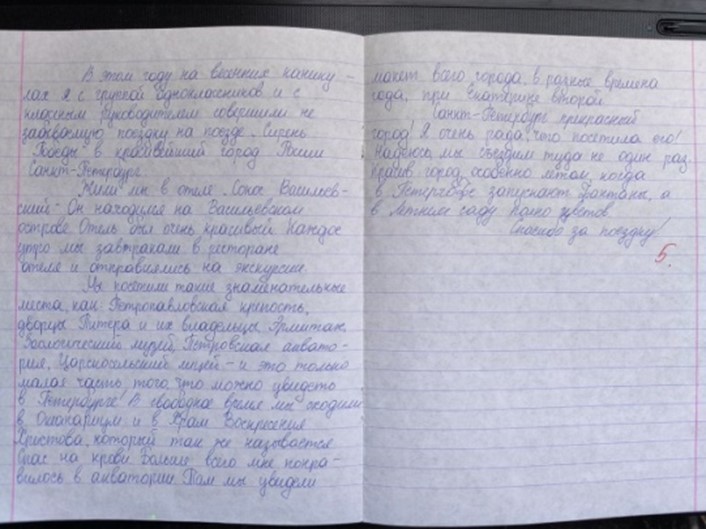 В этом году на весенних канику-
лах я с группой одноклассников и с
классным руководителем совершили не
забываемую поездку на поезде "Сирень
Победы" в красивейший город России
Санкт-Петербург.
Жили мы в отеле "Сокос Васильев-
ский". Он находился на Васильевском
острове. Отель был очень красивый. Каждое
утро мы завтракали в ресторане
отеля и отправлялись на экскурсии.
Мы посетили такие знаменательные
места, как Петропавловская крепость,
дворцы Питера и их владельцы, Эрмитаж,
Зоологический музей, Петровская аквато-
рия, Царскосельский лицей - и это только
малая часть того, что можно увидеть
в Петербурге! В свободное время мы сходили
в Океанариум и в Храм Воскресения
Христова, который так же называется
Спас на крови. Больше всего мне понра-
вилось в акватории. Там мы увидели
макет всего города, в разные времена
года, при Екатерине Второй.
Санкт-Петербург прекрасный
город! Я очень рада, что посетила его!
Надеюсь, мы съездим туда не один раз.
Красив город, особенно летом, когда
в Петергофе запускают фонтаны, а
в Летнем саду полно цветов.
Спасибо за поездку!
5.